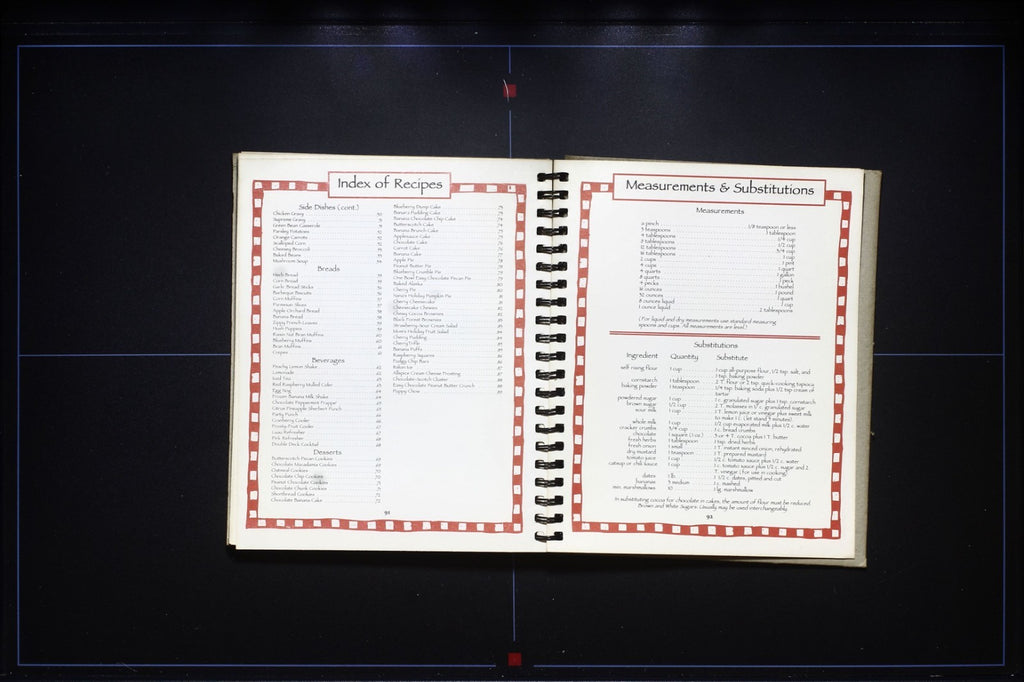 Index of Recipes
Side Dishes (cont.)
Chicken Gravy 50
Supreme Gravy 51
Green Bean Casserole 51
Parsley Potatoes 52
Orange Carrots 52
Scalloped Corn 53
Cheesey Broccoli 53
Baked Beans 53
Mushroom Soup 54
Breads
Herb Bread
Corn Bread
Garlic Bread Sticks
Barbeque Biscuits
Corn Muffins
Parmesan Slices
Apple Orchard Bread
Banana Bread
Zippy French Loaves
Hush Puppies
Raisin Nut Bran Muffins
Blueberry Muffins
Bran Muffins
Crepes
Beverages
Peachy Lemon Shake
Lemonade
Iced Tea
Red Raspberry Mulled Cake
Egg Nog
Frozen Banana Milk Shake
Chocolate Peppermint Frappe
Citrus Pineapple Sherbert Punch
Party Punch
Cranberry Cooler
Frosty Fruit Cooler
Luau Refresher
Pink Refresher
Double Deck Cocktail
Desserts
Butterscotch Pecan Cookies
Chocolate Macadamia Cookies
Oatmeal Cookies
Chocolate Chip Cookies
Peanut Chocolate Cookies
Chocolate Chunk Cookies
Shortbread Cookies
Chocolate Banana Cake
Blueberry Dump Cake
Banana Pudding Cake
Banana Chocolate Chip Cake
Butterscotch Cake
Banana Brunch Cake
Applesauce Cake
Chocolate Cake
Carrot Cake
Banana Cake
Apple Pie
Peanut Butter Pie
Blueberry Crumble Pie
One Bowl Easy Chocolate Pecan Pie
Baked Alaska
Cherry Pie
Nana's Holiday Pumpkin Pie
Cherry Cheesecake
Cheesecake Chewies
Chewy Cocoa Brownies
Black Forest Brownies
Strawberry-Sour Cream Salad
Mom's Holiday Fruit Salad
Cherry Pudding
Cherry Trifle
Banana Puffs
Raspberry Squares
Fudgy Chip Bars
Allspice Cream Cheese Frosting
Chocolate-Scotch Cluster
Easy Chocolate Peanut Butter Crunch
Puppy Chow
91
Measurements & Substitutions
Measurements
a pinch 1/8 teaspoon or less
3 teaspoons 1 tablespoon
4 tablespoons 1/4 cup
8 tablespoons 1/2 cup
12 tablespoons 3/4 cup
16 tablespoons 1 cup
2 cups 1 pint
4 cups 1 quart
4 quarts 1 gallon
8 quarts 1 peck
4 pecks 1 bushel
16 ounces 1 pound
32 ounces 1 quart
8 ounces liquid 1 cup
1 ounce liquid 2 tablespoons
(For liquid and dry measurements use standard measuring
spoons and cups. All measurements are level.)
Substitutions
Ingredient Quantity Substitute
self rising flour 1 cup 1 cup all-purpose flour, 1/2 tsp. salt, and
1 tsp. baking powder
cornstarch 1 tablespoon 2 T. flour or 2 tsp. quick-cooking tapioca
baking powder 1 teaspoon 1/4 tsp. baking soda plus 1/2 tsp cream of
tartar
powdered sugar 1 cup 1 c. granulated sugar plus 1 tsp. cornstarch
brown sugar 1/2 cup 2 T. molasses in 1/2 c. granulated sugar
sour milk 1 cup 1 T. lemon juice or vinegar plus sweet milk
to make 1 c. (let stand 5 minutes)
whole milk 1 cup 1/2 cup evaporated milk plus 1/2 c. water
cracker crumbs 3/4 cup 1 c. bread crumbs
chocolate 1 square (1 oz.) 3 or 4 T. cocoa plus 1 T. butter
fresh herbs 1 tablespoon 1 tsp. dried herbs
fresh onion 1 small 1 T. instant minced onion, rehydrated
dry mustard 1 teaspoon 1 T. prepared mustard
tomato juice 1 cup 1/2 c. tomato sauce plus 1/2 c. water
catsup or chili sauce 1 cup 1 c. tomato sauce plus 1/2 c. sugar and 2
T. vinegar (for use in cooking)
dates 1 lb. 1 1/2 c. dates, pitted and cut
bananas 3 medium 1 c. mashed
min. marshmallows 10 1 lg. marshmallow
In substituting cocoa for chocolate in cakes, the amount of flour must be reduced.
Brown and White Sugars: Usually may be used interchangeably.
92